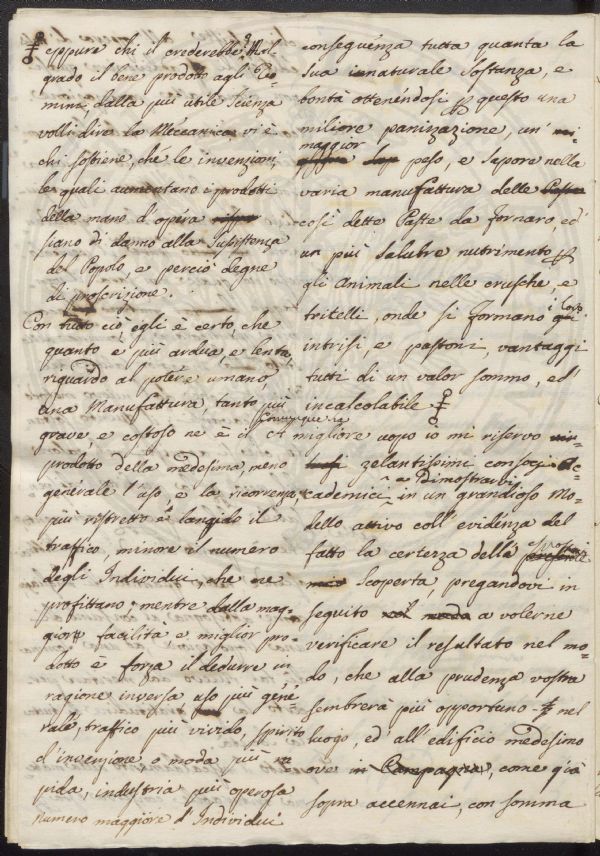 eppure chi il crederebbe? Mal
grado il bene prodotto agli Uo=
mini dalla più utile Scienza
volli dire la Meccanica vi è
chi sostiene, che le invenzioni,
le quali aumentano i prodotti
della mano d'opéra
siano di danno alla Susistenza
del Popolo, e perciò degne
di proscrizione.
Con tutto ciò, egli è certo, che
quanto è più ardua, e lenta,
riguardo al potére umano,
una Manufattura, tanto più
grave, e costoso ne è il
prodotto della medesima, meno
genérale l'uso, e la ricorrenza,
più ristretto è languido il
traffico, minore il numero
degli Individui, che ne
profittano; mentre dalla mag=
giore facilità e miglior pro=
dotto è forza il dedurre in
ragione inversa, uso più géné=
rale, traffico più vivido, spirito
d'invenzione o moda più ra
pida, industria più operosa
numero maggiore d'Individui
conseguénza tutta quanta la
sua innaturale Sostanza, e
bontà ottenéndosi per questo una
miliore panizazione, un'
maggior
peso, e sapore nella
varia manufattura delle
così dette Paste da fornaro, ed'
un più salubre nutrimento per
gli Animali nelle crusche, e
tritelli, onde si formano i loro
intrisi, e pastoni, vantaggi
tutti di un valor sommo, ed'
incalcolabile
Comunque ia
A migliore uopo io mi riservo
zelantissimi consocj Ac=
cademici a Dimostrarvi in un grandioso Mo=
dello attivo coll'evidenza del
fatto la certezza della esposta
scoperta, pregandovi in
seguito a volerne
verificare il resultato nel mo=
do, che alla prudenza vostra
sembrerà più opportuno nel
luogo, ed' all'edificio medesimo
ove in Campagna, come già
sopra accennai, con somma